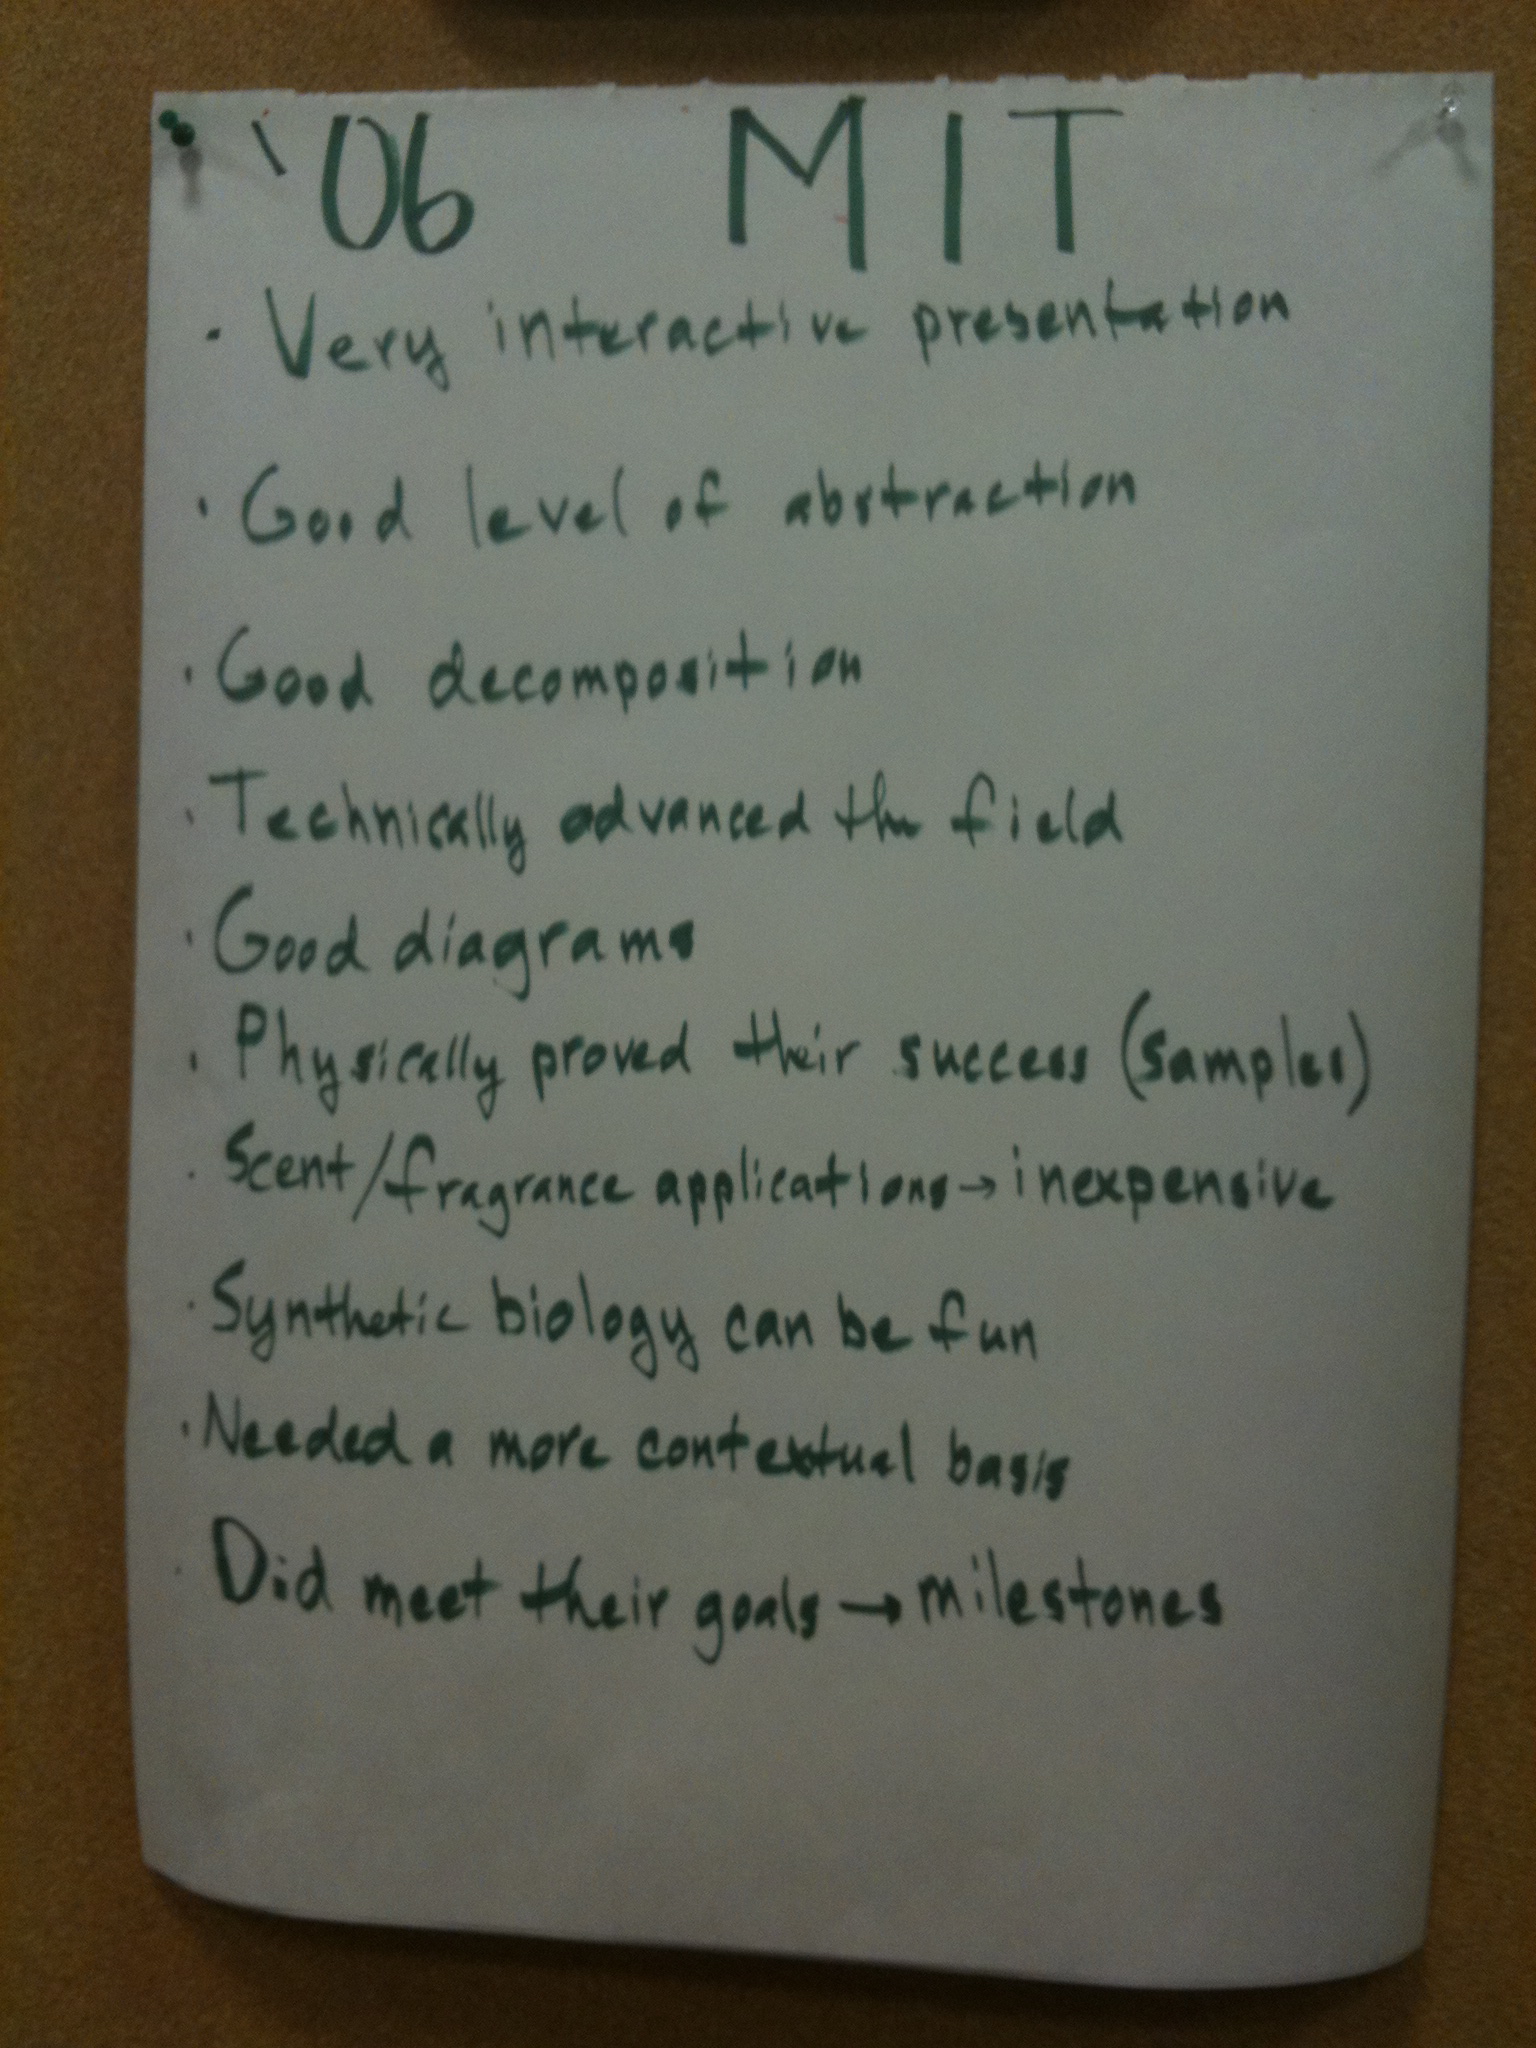 '06 MIT
· Very interactive presentation
· Good level of abstraction
· Good decomposition
· Technically advanced the field
· Good diagrams
· Physically proved their success (samples)
· Scent/fragrance applications → inexpensive
· Synthetic biology can be fun
· Needed a more contextual basis
· Did meet their goals → milestones